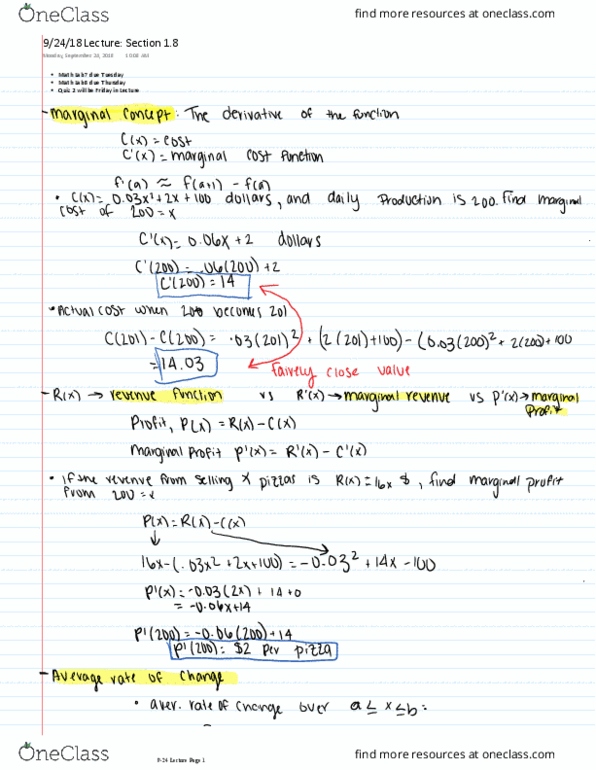 OneClass
find more resources at oneclass.com
9/24/18 Lecture: Section 1.8
Monday, September 24, 2018 10:08 AM
• Math Lab 7 due Tuesday
• Math Lab 8 due Thursday
• Quiz 2 will be Friday in Lecture
- Marginal Concept: The derivative of the function
C(x) = cost
C'(x) = marginal cost function
f'(a) ≈ f(a+1) - f(a)
• C(x) = 0.03x² + 2x + 100 dollars, and daily production is 200. Find marginal
cost of 200 = x
C'(x) = 0.06x + 2 dollars
C'(200) = .06(200) + 2
C'(200) = 14
• Actual cost when 200 becomes 201
C(201) - C(200) = .03(201)² + (2(201)+100) - (0.03(200)² + 2(200)+100
= 14.03
fairely close value
- R(x) → revenue function vs R'(x) → marginal revenue vs P'(x) → marginal
Profit
Profit, P(x) = R(x) - C(x)
Marginal Profit P'(x) = R'(x) - C'(x)
• If the revenue from selling x pizzas is R(x) = 16x $, find marginal profit
from 200 = x
P(x) = R(x) - C(x)
16x - (.03x² + 2x + 100) = -0.03² + 14x - 100
P'(x) = -0.03(2x) + 14 + 0
= -0.06x + 14
P'(200) = -0.06(200) + 14
P'(200) = $2 per pizza
- Average rate of change
• aver. rate of change over a ≤ x ≤ b =
OneClass
9-24 Lecture Page 1
find more resources at oneclass.com